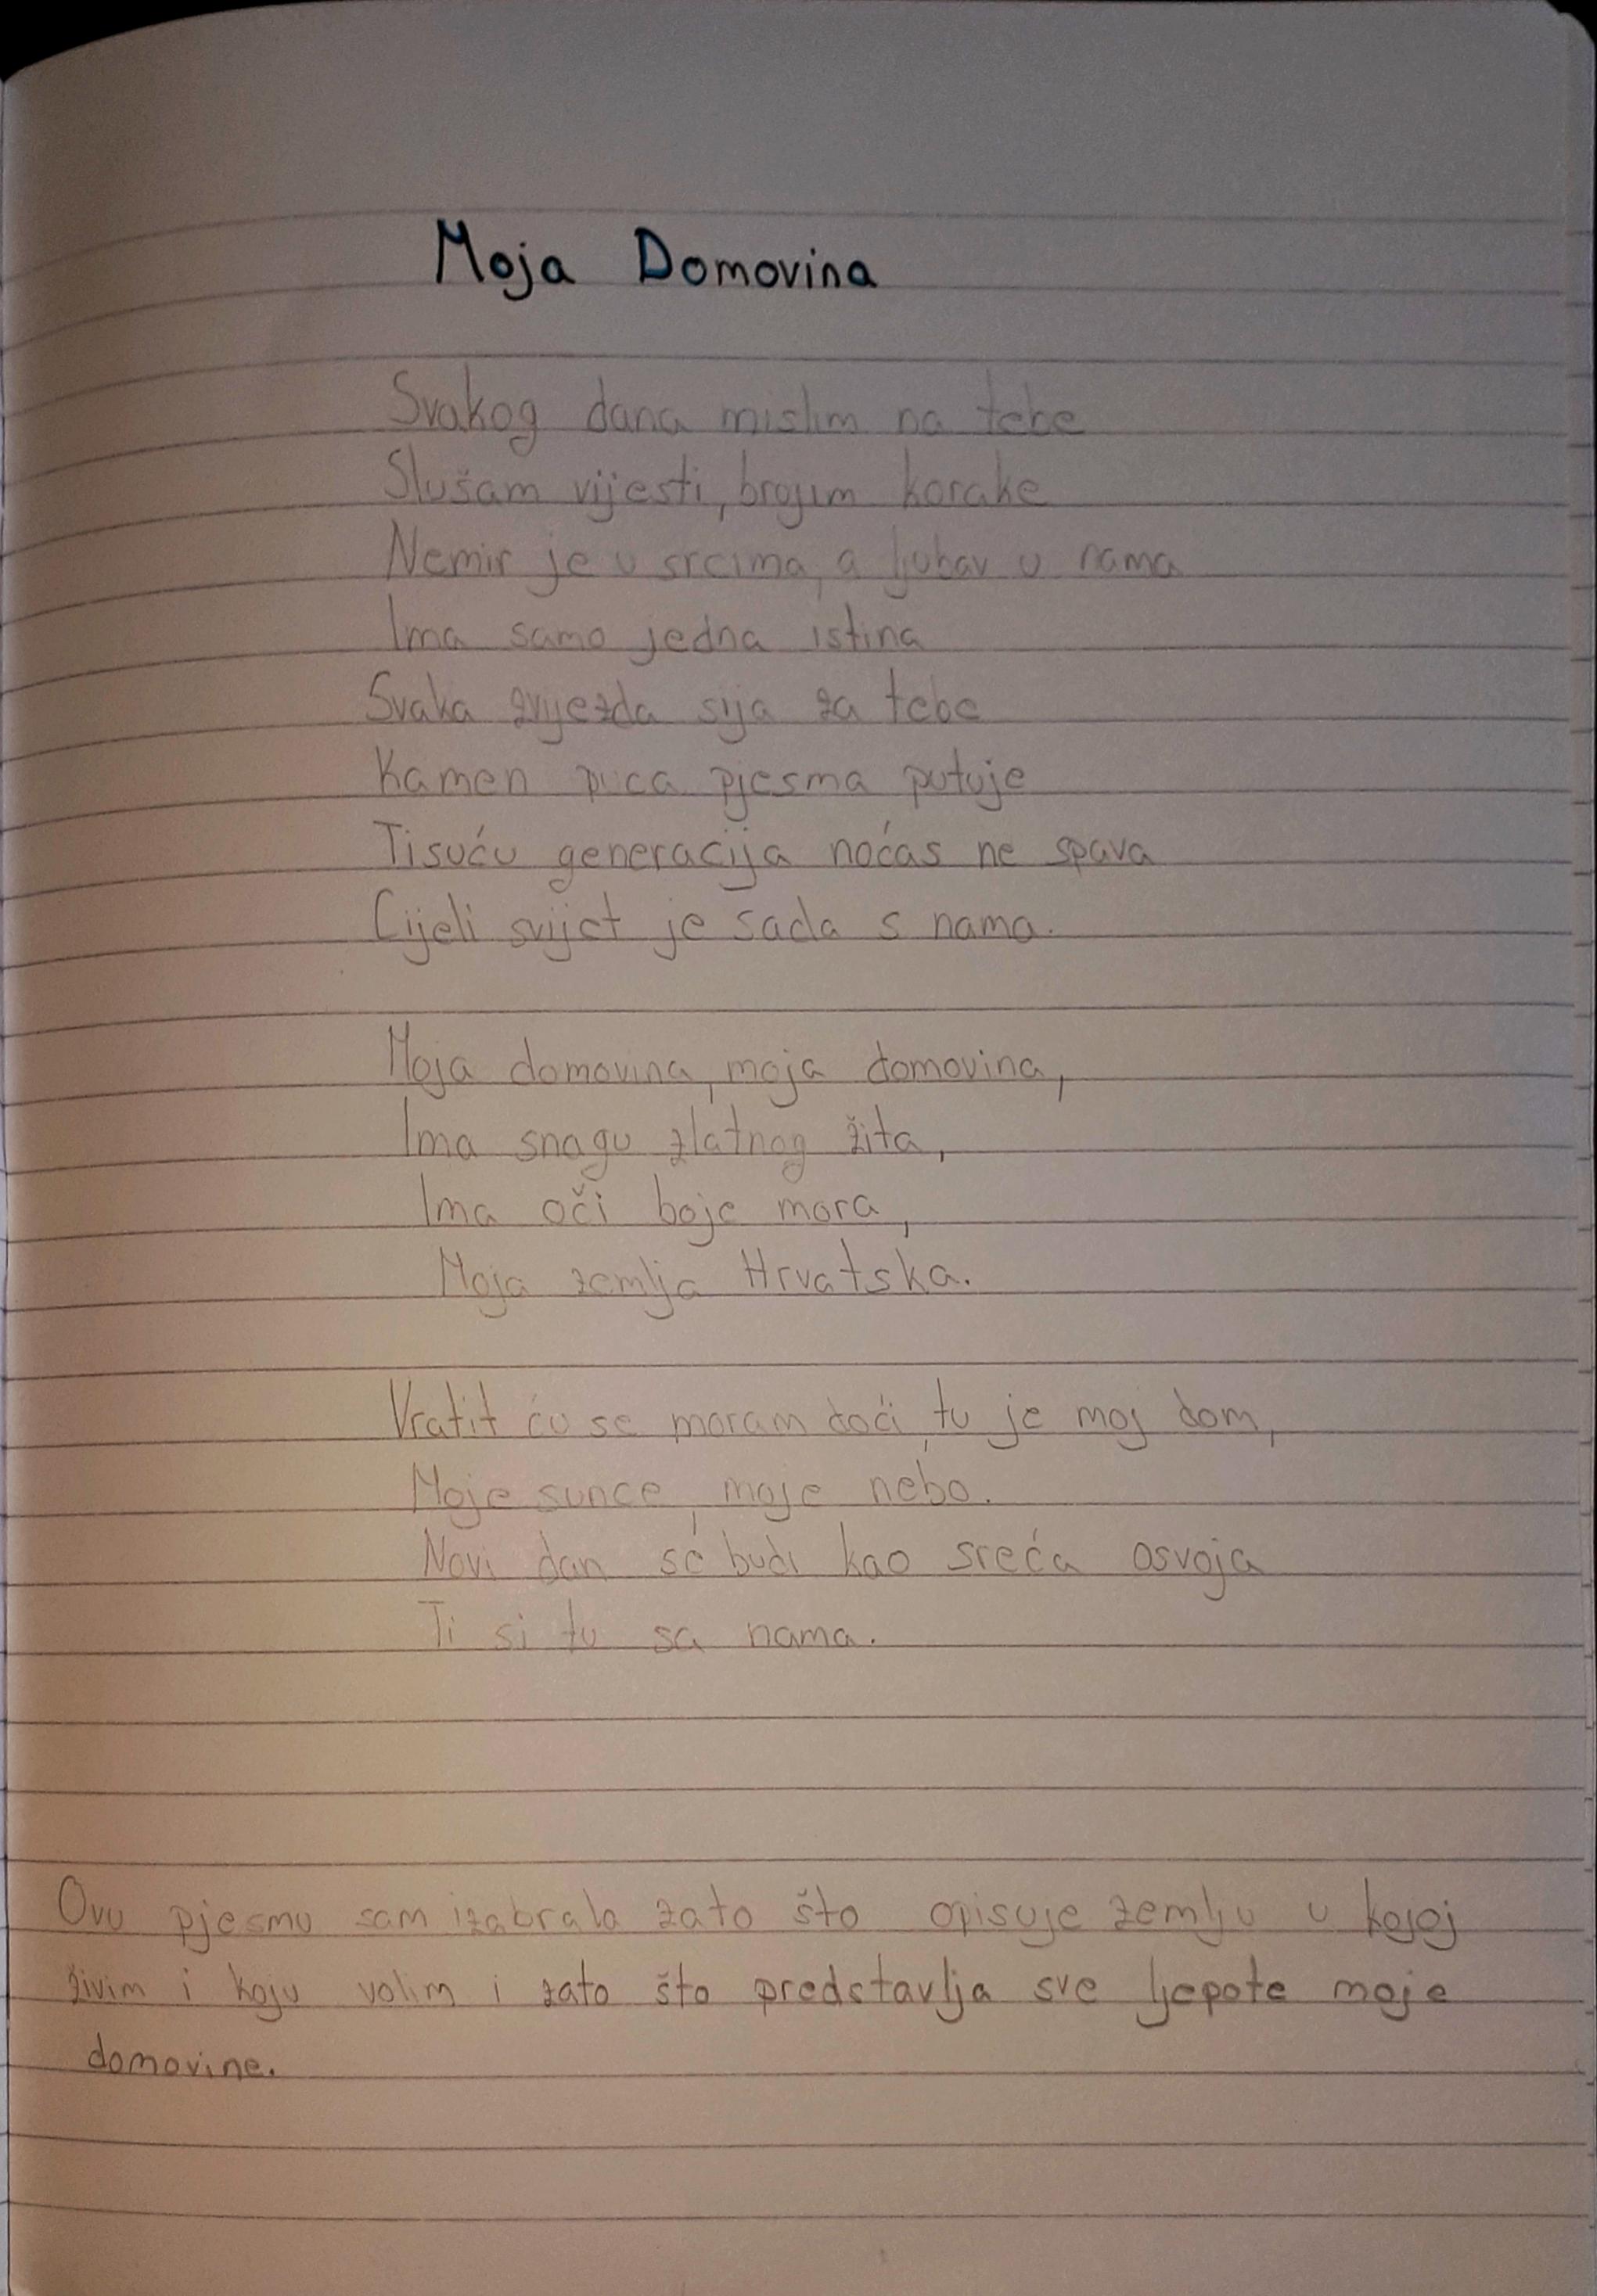 Moja Domovina
Svakog dana mislim na tebe
Slušam vijesti, brojim korake
Nemir je u srcima, a ljubav u nama
Ima samo jedna istina
Svaka zvijezda sija za tebe
Kamen puca pjesma putuje
Tisuću generacija noćas ne spava
Cijeli svijet je sada s nama.
Moja domovina, moja domovina,
Ima snagu zlatnog žita,
Ima oči boje mora,
Moja zemlja Hrvatska.
Vratit ću se moram doći, tu je moj dom,
Moje sunce, moje nebo.
Novi dan se budi kao sreća osvoja
Ti si tu sa nama.
Ovu pjesmu sam izabrala zato što opisuje zemlju u kojoj
živim i koju volim i zato što predstavlja sve ljepote moje
domovine.